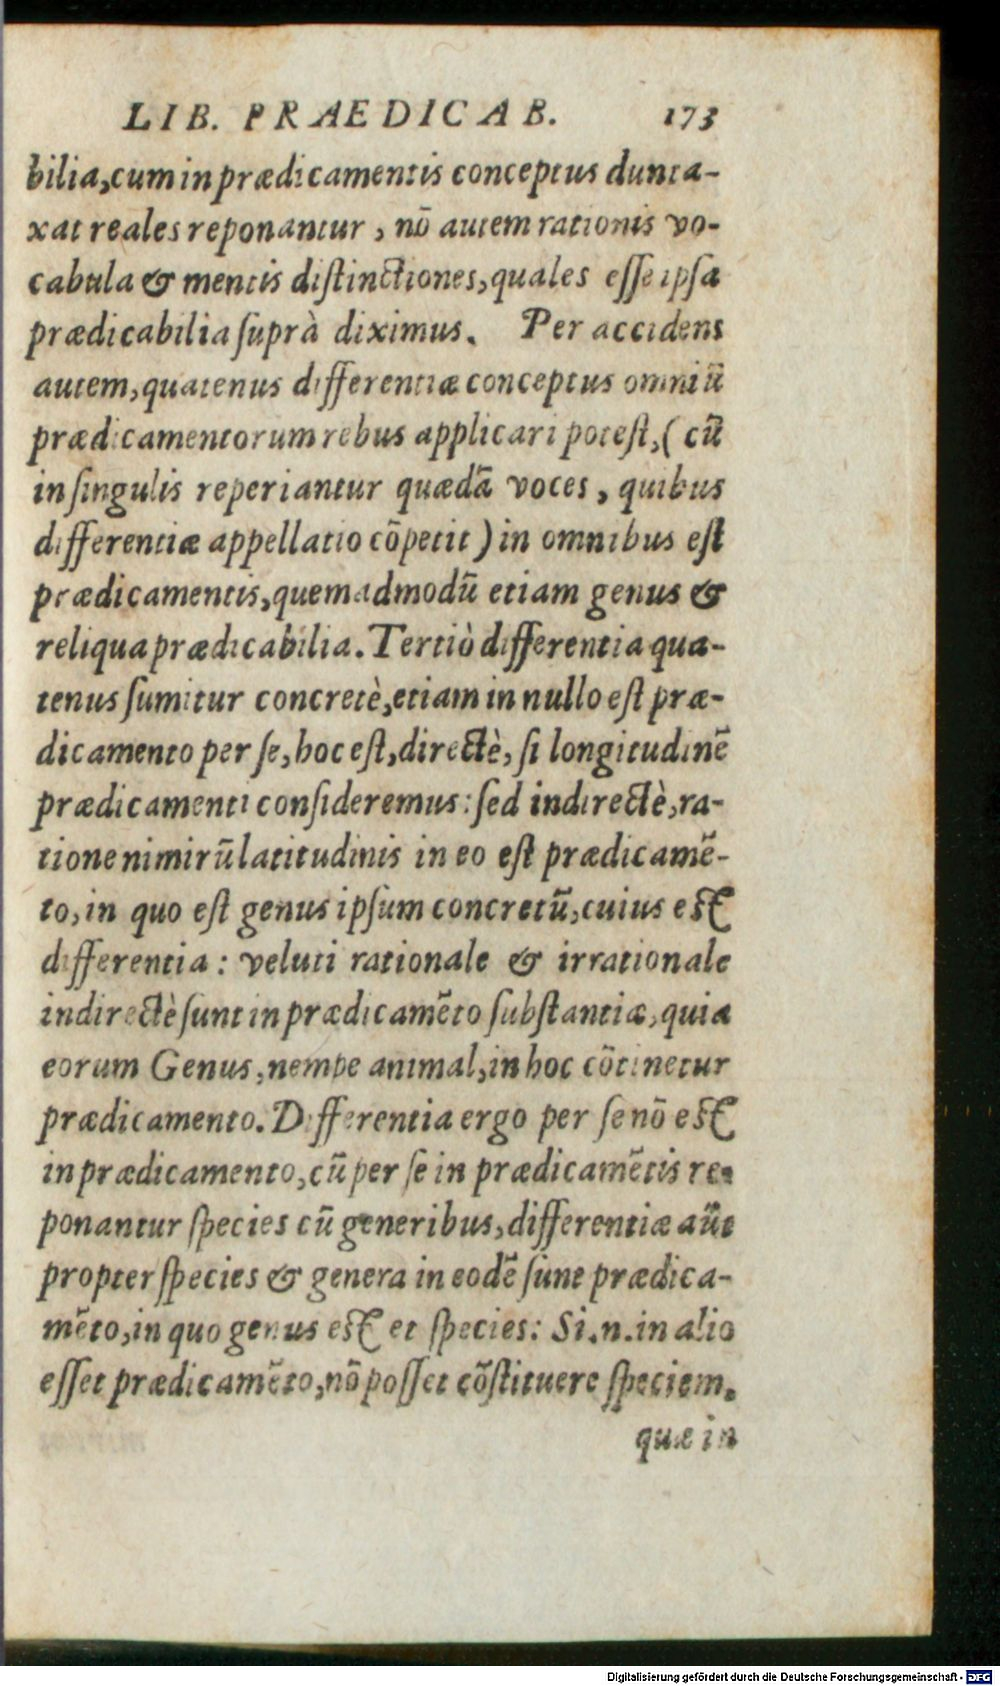 LIB. PRAEDICAB. 173
bilia, cum in prædicamentis conceptus dunta-
xat reales reponantur, nō autem rationis vo-
cabula & mentis distinctiones, quales esse ipsa
prædicabilia suprà diximus. Per accidens
autem, quatenus differentiæ conceptus omniū
prædicamentorum rebus applicari potest, (cū
in singulis reperiantur quædā voces, quibus
differentiæ appellatio cōpetit) in omnibus est
prædicamentis, quemadmodū etiam genus &
reliqua prædicabilia. Tertiò differentia qua-
tenus sumitur concretè, etiam in nullo est præ-
dicamento per se, hoc est, directè, si longitudinē
prædicamenti consideremus: sed indirectè, ra-
tione nimirū latitudinis in eo est prædicamē-
to, in quo est genus ipsum concretū, cuius est
differentia: veluti rationale & irrationale
indirectè sunt in prædicamēto substantiæ, quia
eorum Genus, nempe animal, in hoc cōtinetur
prædicamento. Differentia ergo per se nō est
in prædicamento, cū per se in prædicamētis re-
ponantur species cū generibus, differentiæ aūt
propter species & genera in eodē sunt prædica-
mēto, in quo genus est et species: Si.n. in alio
esset prædicamēto, nō posset cōstituere speciem,
quæ in
Digitalisierung gefördert durch die Deutsche Forschungsgemeinschaft - DFG